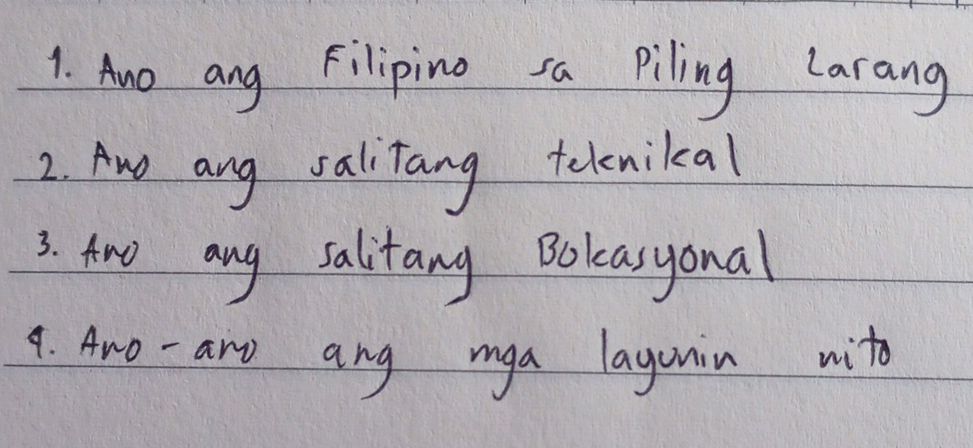 1. Ano ang Filipino sa Piling Larang
2. Ano ang salitang teknikal
3. Ano ang salitang Bokasyonal
4. Ano-ano ang mga layunin nito